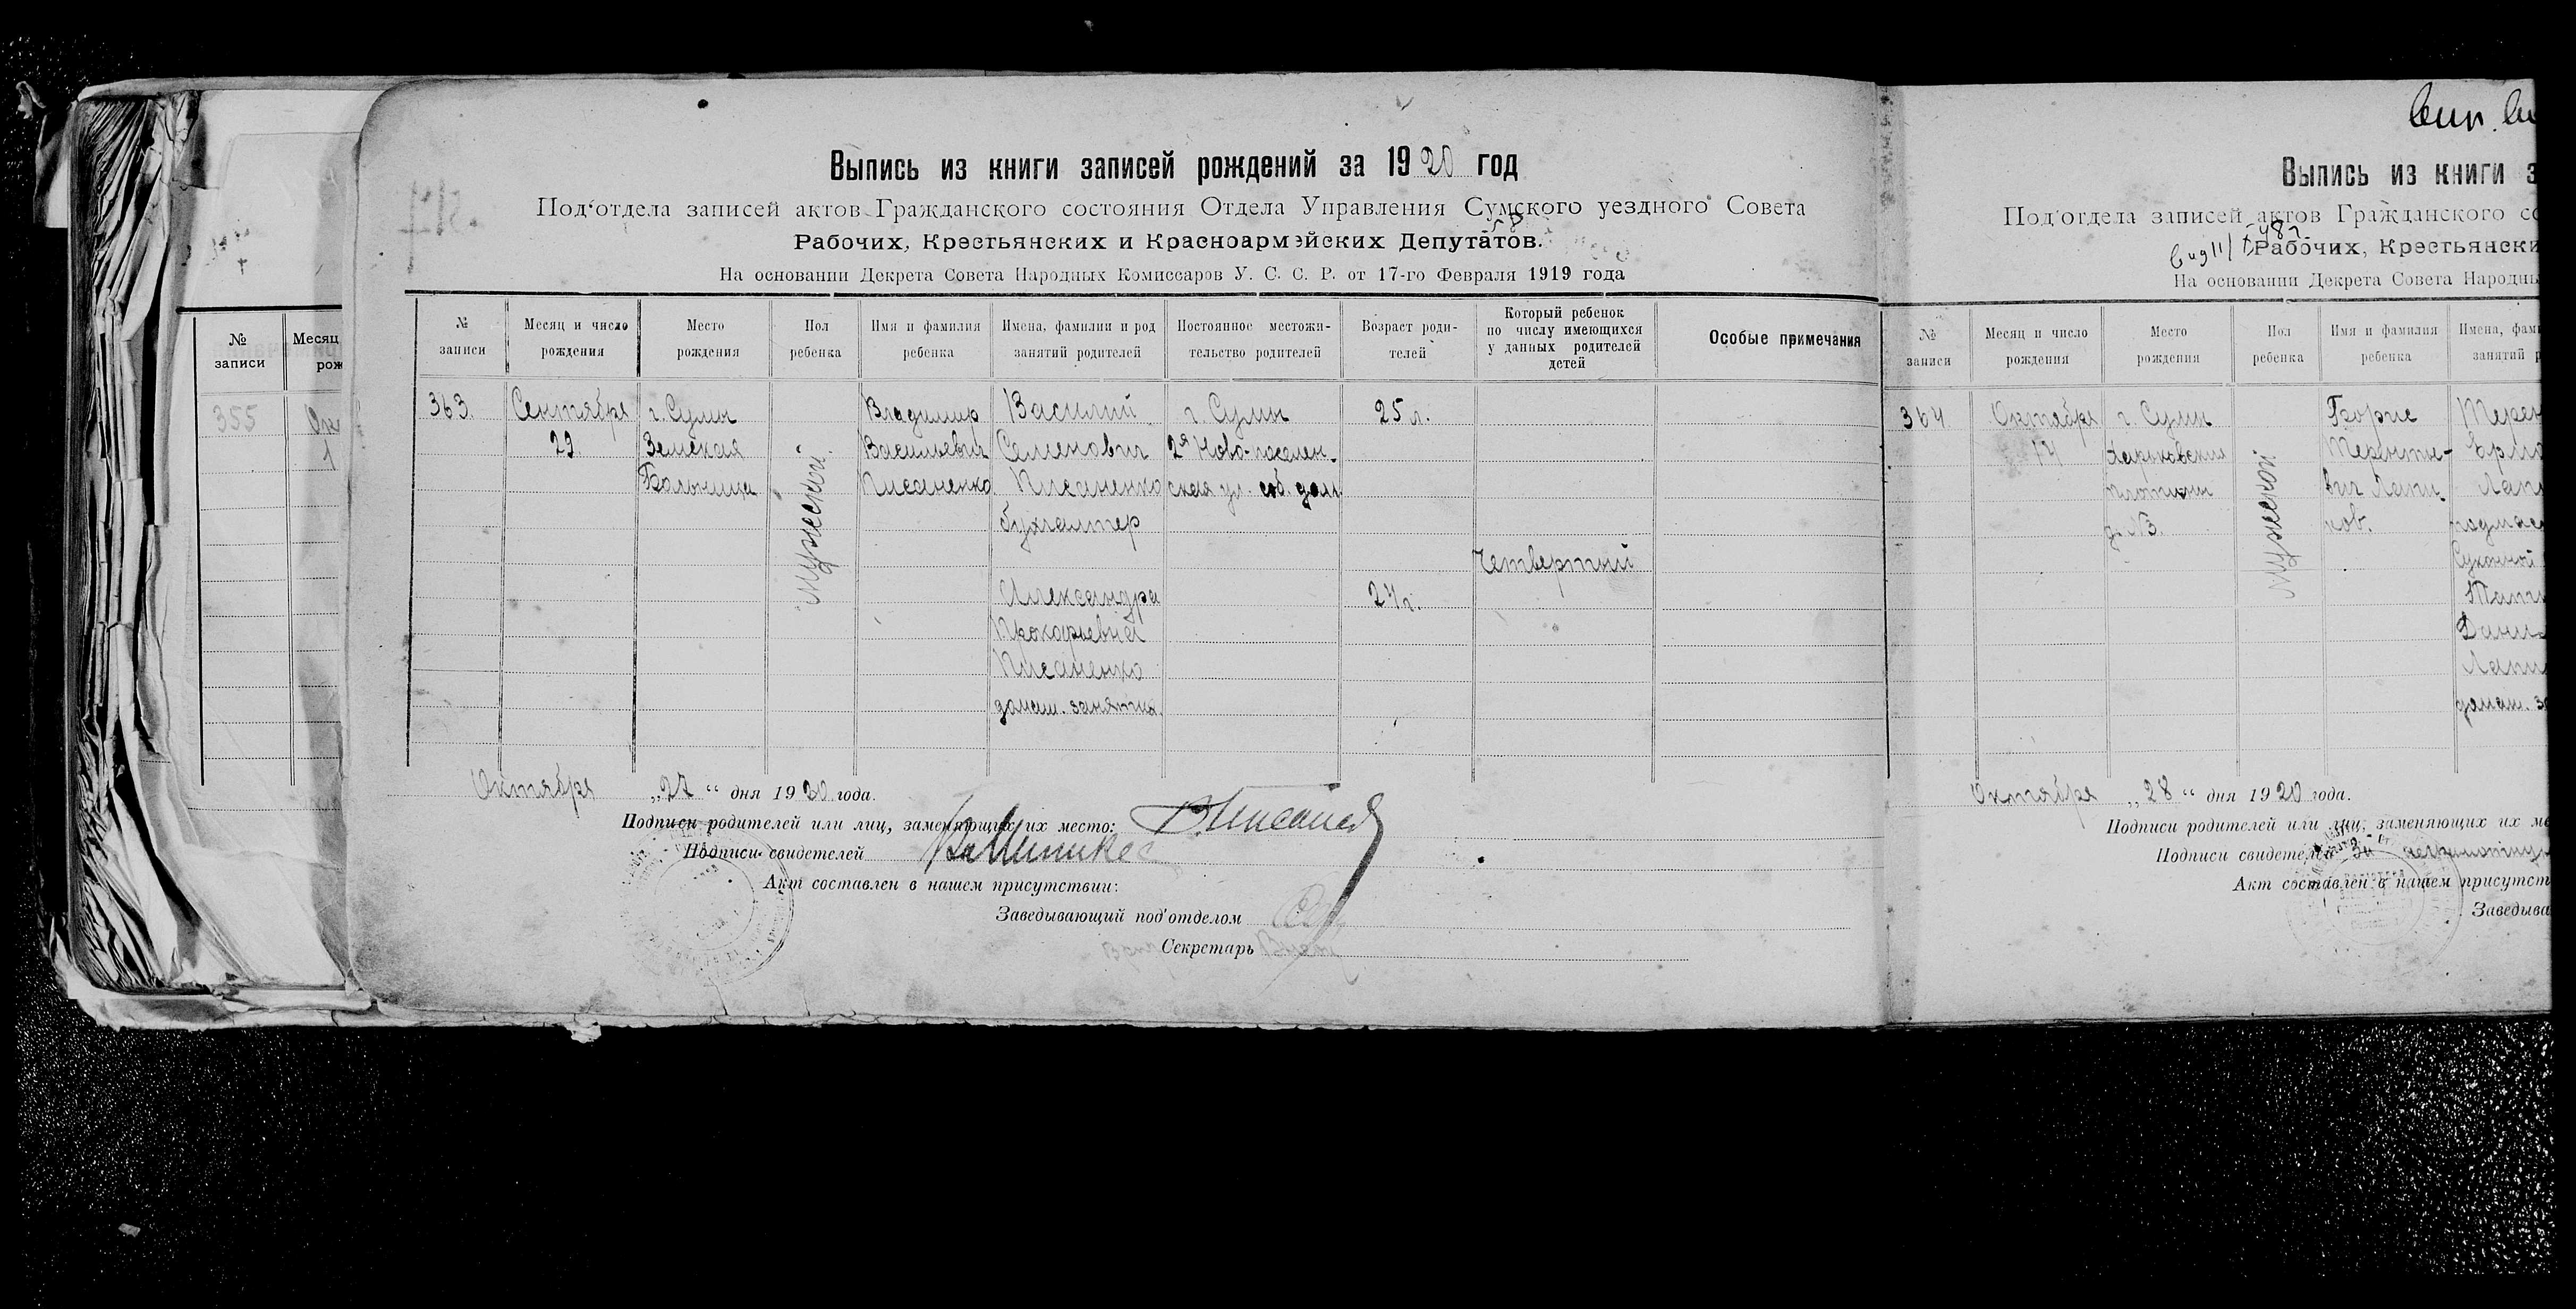 №
записи
Месяц
рож
355
Ок
1
Выпись из книги записей рождений за 1920 год
Под'отдела записей актов Гражданского состояния Отдела Управления Сумского уездного Совета
Рабочих, Крестьянских и Красноармейских Депутатов.
На основании Декрета Совета Народных Комиссаров У. С. С. Р. от 17-го Февраля 1919 года
№ записи
Месяц и число рождения
Место рождения
Пол ребенка
Имя и фамилия ребенка
Имена, фамилии и род занятий родителей
Постоянное местожительство родителей
Возраст родителей
Который ребенок по числу имеющихся у данных родителей детей
Особые примечания
363.
Сентября
29.
г. Сумы
Земская
Больница
мужеский.
Владимир
Васильевич
Писаненко
Василий
Семенович
Писаненко
бухгалтер
Александра
Прокофьевна
Писаненко
домаш. занятия.
г. Сумы
2я Ново-поселен-
ская ул. соб. дом.
25 л.
24 г.
Четвертый
Октября „27“ дня 1920 года.
Подписи родителей или лиц, заменяющих их место:
Подписи свидетелей
Акт составлен в нашем присутствии:
Заведывающий под'отделом
Секретарь
Выпись из книги з
Под'отдела записей актов Гражданского со
Рабочих, Крестьянски
На основании Декрета Совета Народны
№ записи
Месяц и число рождения
Место рождения
Пол ребенка
Имя и фамилия ребенка
Имена, фам
занятий р
364
Октября
14
г. Сумы
Харьковские
д. №3.
мужеский
Борис
Теренть-
евич Лапи-
ков.
Терен
Ермо
Лап
подмас
Суконной
Тать
Дани
Лапи
домаш. за
Октября „28“ дня 1920 года.
Подписи родителей или лиц, заменяющих их ме
Подписи свидетелей За неграмотную
Акт составлен в нашем присутст
Заведыва